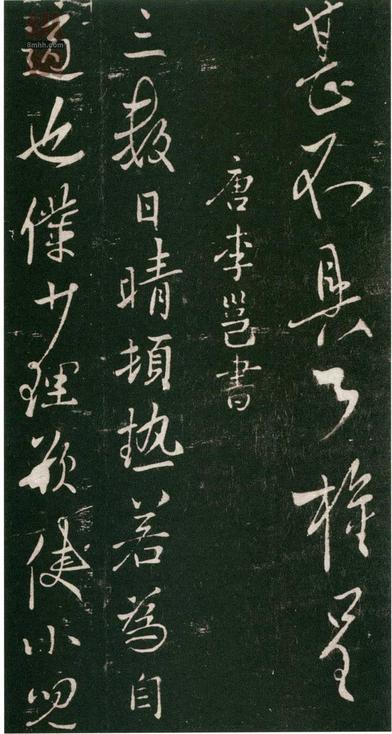 甚不具了権呈
唐李邕書
三數日晴頓熱若為自
適也僕少理欲使小兒
8mhh.com